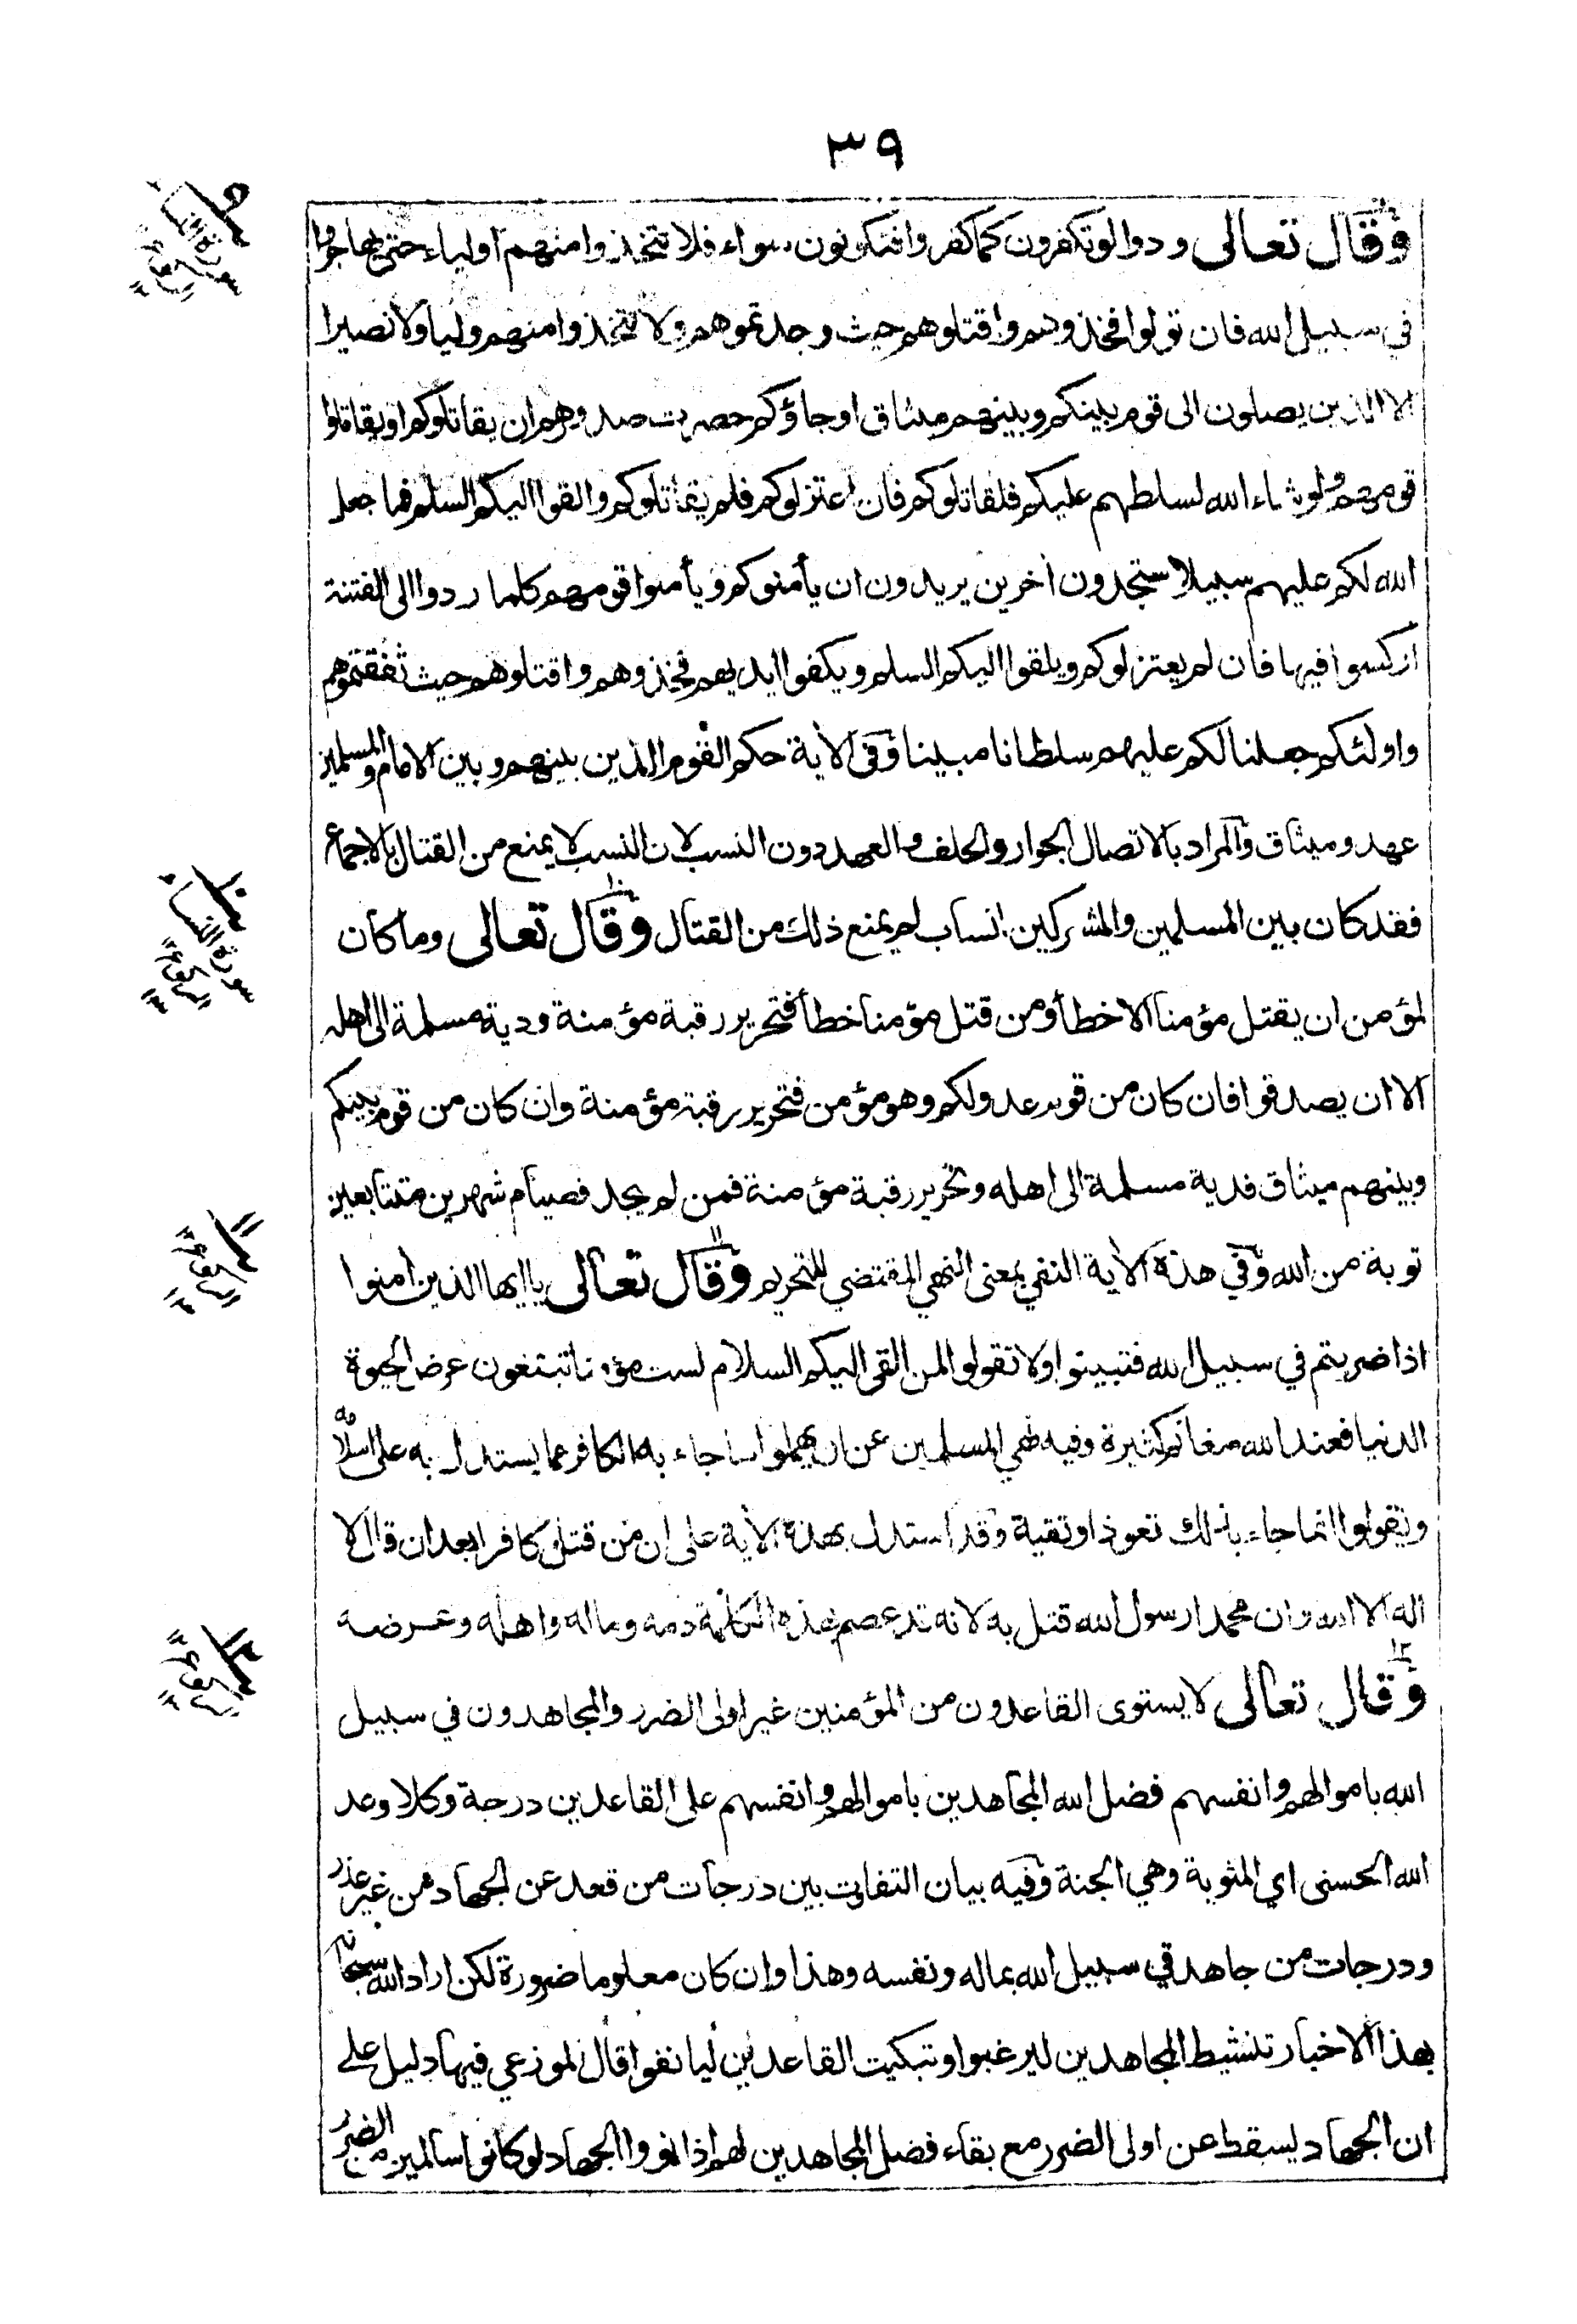 ٣٩
وقال تعالى ودوا لو تكفرون كما كفروا فتكونون سواء فلا تتخذوا منهم اولياء حتى يهاجروا
في سبيل الله فان تولوا فخذوهم واقتلوهم حيث وجدتموهم ولا تتخذوا منهم وليا ولا نصيرا
الا الذين يصلون الى قوم بينكم وبينهم ميثاق اوجاؤكم حصرت صدورهم ان يقاتلوكم او يقاتلوا
قومهم ولو شاء الله لسلطهم عليكم فلقاتلوكم فان اعتزلوكم فلم يقاتلوكم والقوا اليكم السلم فما جعل
الله لكم عليهم سبيلا ستجدون أخرين يريدون ان يأمنوكم ويأمنوا قومهم كلما ردوا الى الفتنة
اركسوا فيها فان لم يعتزلوكم ويلقوا اليكم السلم ويكفوا ايديهم فخذوهم واقتلوهم حيث ثقفتموهم
واولئكم جعلنا لكم عليهم سلطانا مبينا وفى الأية حكم القوم الذين بينهم وبين الامام والمسلمين
عهد وميثاق والمراد بالاتصال الجوار والحلف والعهد دون النسب لان النسب لا يمنع من القتال بالاجماع
فقد كان بين المسلمين والمشركين انساب لم يمنع ذلك من القتال ١٠ وقال تعالى وما كان
لمؤمن ان يقتل مؤمنا الا خطأ ومن قتل مؤمنا خطأ فتحرير رقبة مؤمنة ودية مسلمة الى اهله
الا ان يصدقوا فان كان من قوم عدو لكم وهو مؤمن فتحرير رقبة مؤمنة وان كان من قوم بينكم
وبينهم ميثاق فدية مسلمة الى اهله وتحرير رقبة مؤمنة فمن لم يجد فصيام شهرين متتابعين
توبة من الله وفي هذه الأية النفي بمعنى النهي المقتضي للتحريم ١١ وقال تعالى يا ايها الذين امنوا
اذا ضربتم في سبيل الله فتبينوا ولا تقولوا لمن القى اليكم السلام لست مؤمنا تبتغون عرض الحيوة
الدنيا فعند الله مغانم كثيرة وفيه نهي المسلمين عن ان يهملوا ما جاء به الكافر مما يستدل به على اسلامه
ويقولوا انما جاء بذلك تعوذا وتقية وقد استدل بهذه الأية على ان من قتل كافرا بعد ان قال لا
اله الا الله وان محمدا رسول الله قتل به لانه قد عصم بهذه الكلمة دمه وماله واهله وعرضه
١٢ وقال تعالى لا يستوى القاعدون من المؤمنين غير اولى الضرر والمجاهدون في سبيل
الله باموالهم وانفسهم فضل الله المجاهدين باموالهم وانفسهم على القاعدين درجة وكلا وعد
الله الحسنى اي المثوبة وهي الجنة وفيه بيان التفاوت بين درجات من قعد عن الجهاد من غير عذر
ودرجات من جاهد في سبيل الله بماله ونفسه وهذا وان كان معلوما ضرورة لكن اراد الله سبحانه
بهذا الاخبار تنشيط المجاهدين ليرغبوا وتبكيت القاعدين ليأنفوا قال الموزعي فيها دليل على
ان الجهاد يسقط عن اولى الضرر مع بقاء فضل المجاهدين لهم اذا نووا الجهاد لو كانوا سالمين من الضرر
٩
سورة النساء
١٠
سورة النساء
١١
١٢